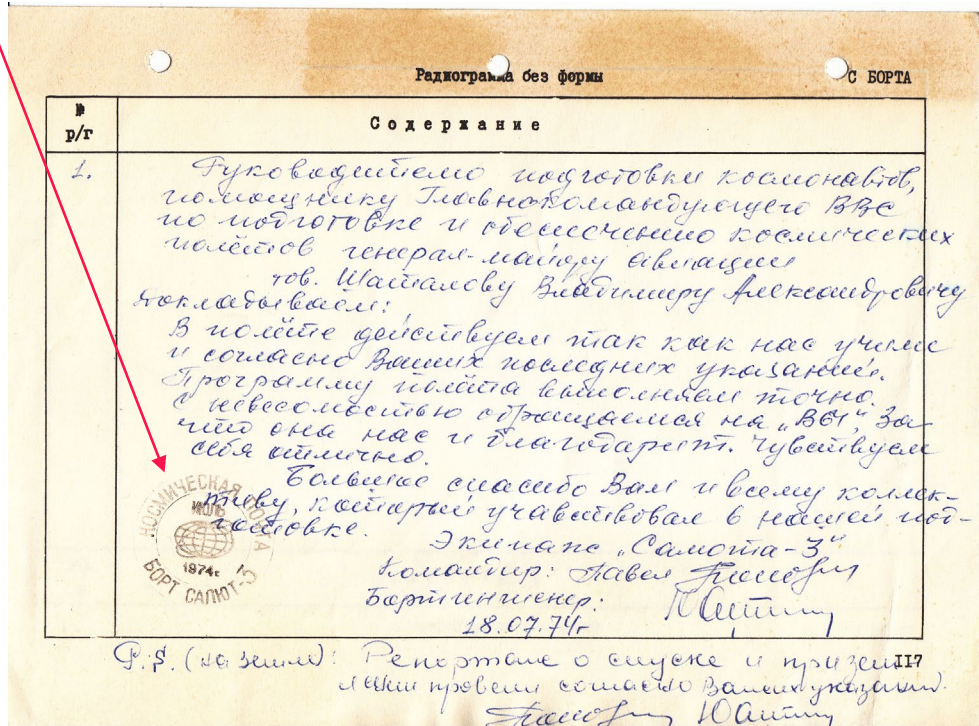 Радиограмма без формы С БОРТА
№ р/г
Содержание
1. Руководителю подготовки космонавтов,
помощнику Главнокомандующего ВВС
по подготовке и обеспечению космических
полётов генерал-майору авиации
тов. Шаталову Владимиру Александровичу
Докладываем:
В полёте действуем так как нас учили
и согласно Ваших последних указаний.
Программу полёта выполняем точно.
С невесомостью обращаемся на „ВЫ“, за
что она нас и благодарит. Чувствуем
себя отлично.
Большое спасибо Вам и всему коллек-
тиву, который учавствовал в нашей под-
готовке.
Экипаж „Салюта-3“
Командир: Павел Попович
Бортинженер:
18.07.74г
КОСМИЧЕСКАЯ ПОЧТА
ИЮЛЬ
1974г.
БОРТ САЛЮТ-3
P.S. (на земле): Репортаж о спуске и призем-
лении провели согласно Ваших указаний.
II7
Попович